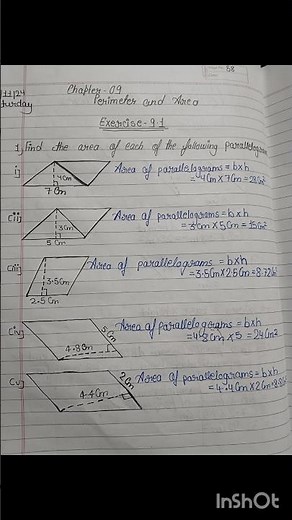 58
11/24
turday
Chapter-09
Perimeter and Area
Exercise-9.1
1. Find the area of each of the following parallelogram
i) 4cm 7cm Area of parallelograms = b×h
= 4cm × 7cm = 28cm²
(ii) 3cm 5cm Area of parallelograms = b×h
= 3cm × 5cm = 15cm²
(iii) 3.5cm 2.5cm Area of parallelograms = b×h
= 3.5cm × 2.5cm = 8.72
(iv) 4.8cm 5cm Area of parallelograms = b×h
= 4.8cm × 5 = 24cm²
(v) 4.4cm 2cm Area of parallelograms = b×h
= 4.4cm × 2cm = 8.8
InShOt